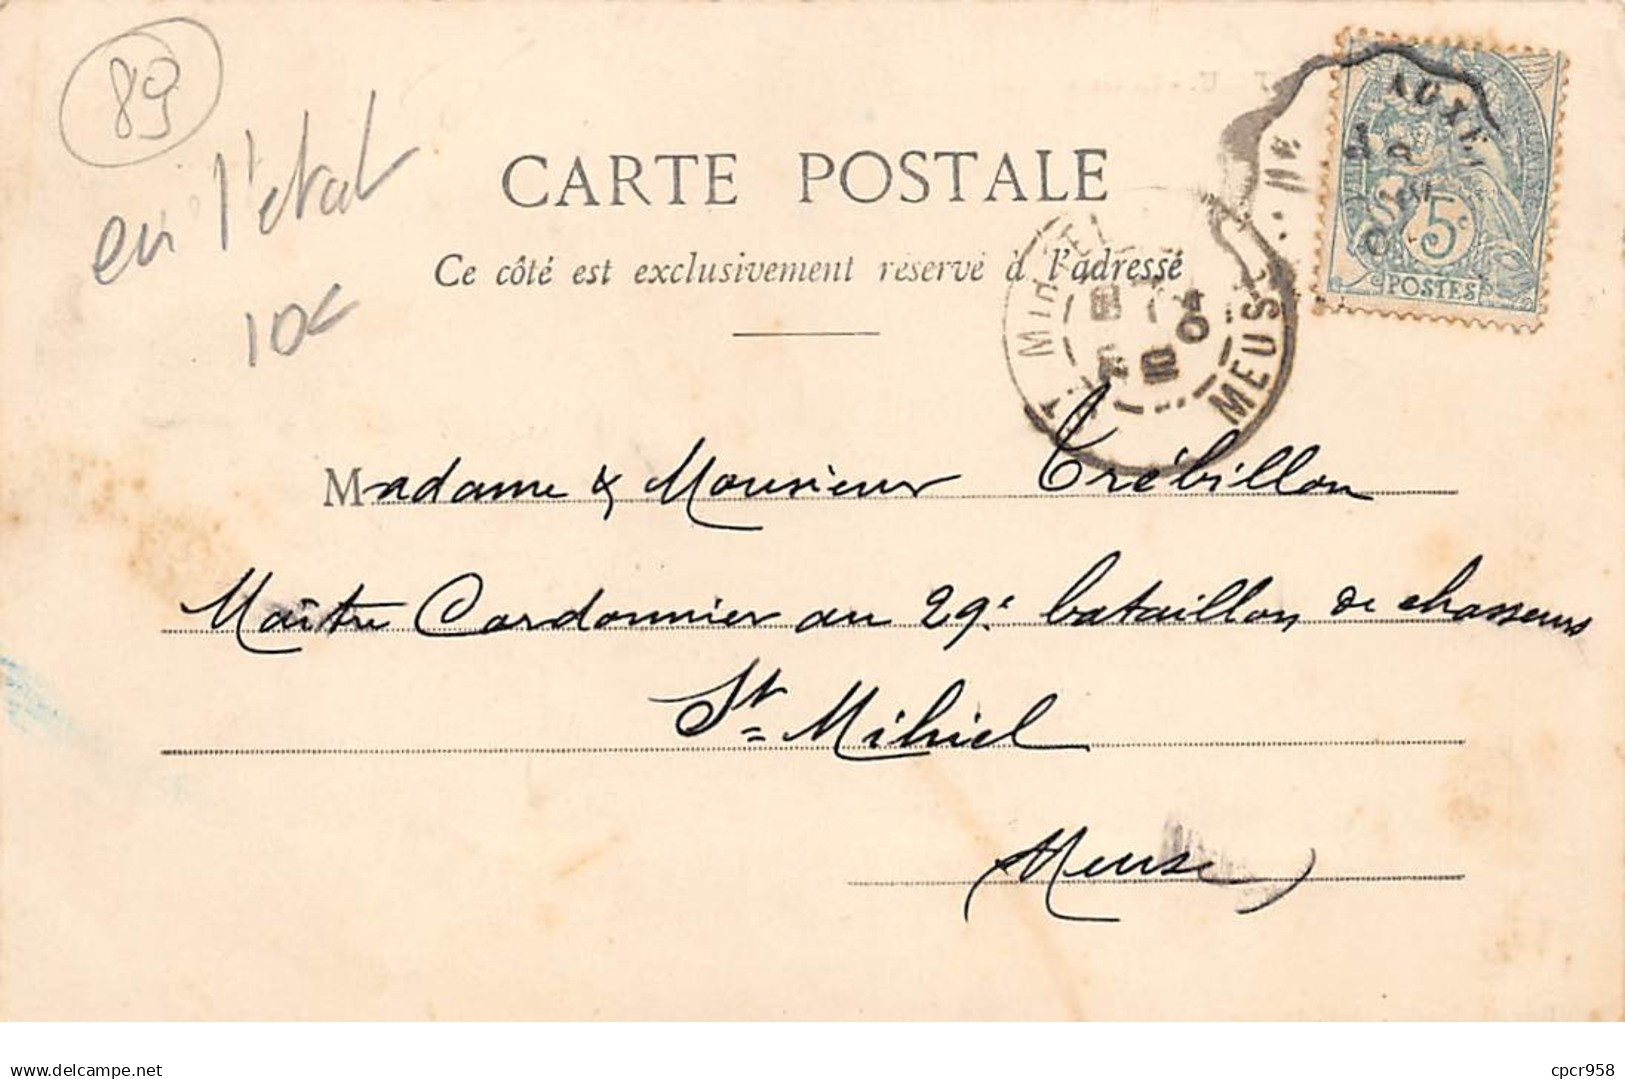 89
en l'état
10€
CARTE POSTALE
Ce côté est exclusivement réservé à l'adresse
5c
POSTES
MEUSE
Madame & Monsieur Crébillon
Maître Cordonnier au 29e bataillon de chasseurs
St = Mihiel
(Meuse)
delcampe.net
cpcr958